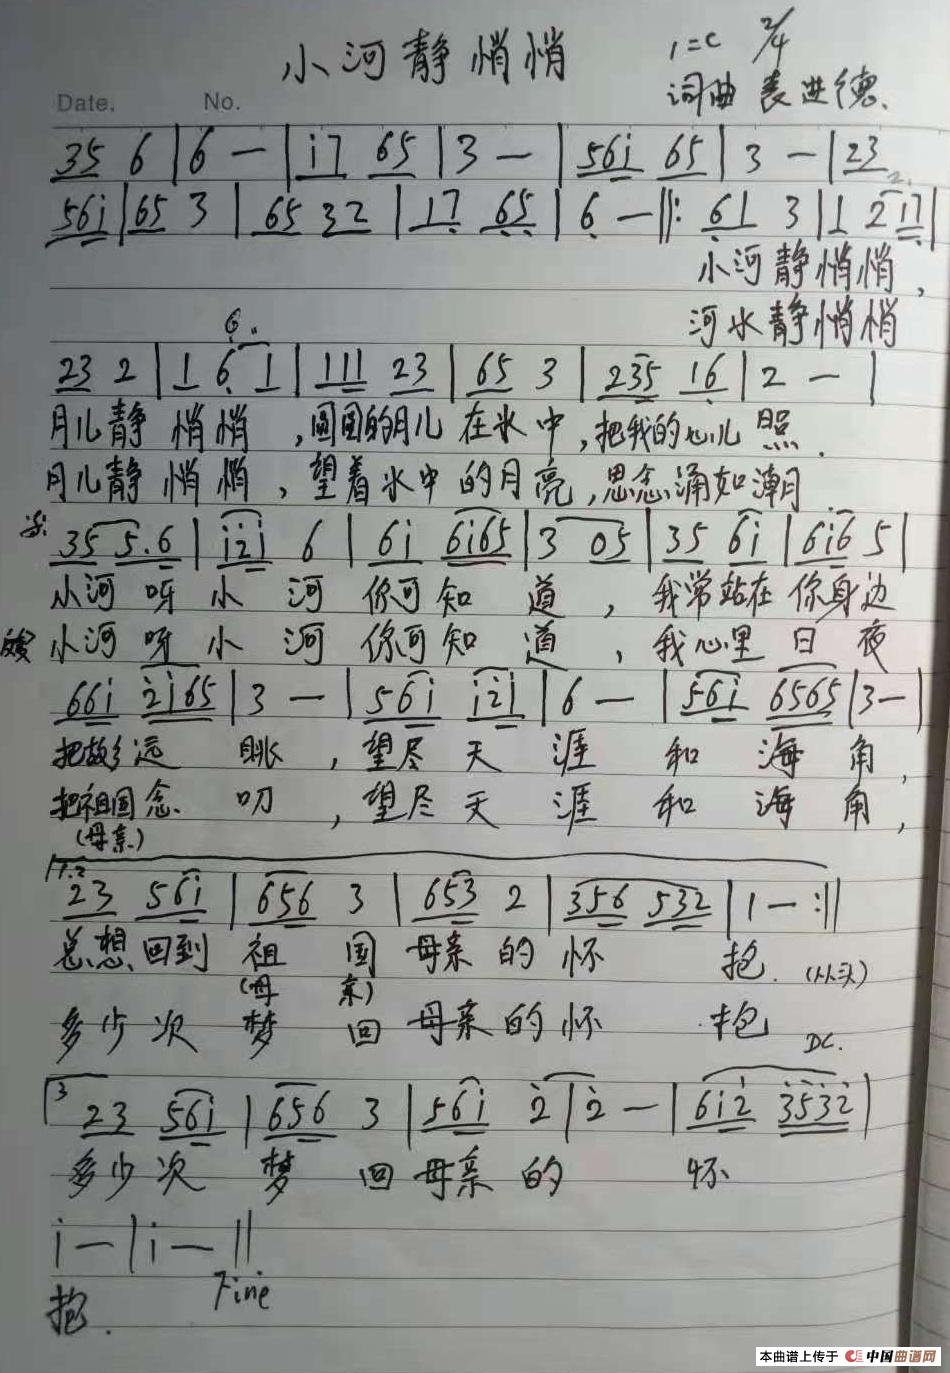 小河静悄悄
1=C 2/4
词曲 袁进德.
Date. No.
35 6 | 6 — | i7 65 | 3 — | 56i 65 | 3 — | 23
56i | 65 3 | 65 32 | 17 65 | 6 — ||: 61 3 | 1 2 17 |
小河静悄悄,
河水静悄悄
23 2 | 1 6 1 | 111 23 | 65 3 | 235 16 | 2 — |
月儿静悄悄,圆圆的月儿在水中,把我的心儿照.
月儿静悄悄,望着水中的月亮,思念涌如潮
35 5.6 | i2i 6 | 6i 6i65 | 3 05 | 35 6i | 6i6 5 |
小河呀小河你可知道,我常站在你身边
小河呀小河你可知道,我心里日夜
66i 2i65 | 3 — | 56i i2i | 6 — | 56i 6565 | 3— |
把故乡远眺,望尽天涯和海角,
把祖国念叨,望尽天涯和海角,
(母亲)
1.2
23 56i | 656 3 | 653 2 | 356 532 | 1 — :||
总想回到祖国母亲的怀抱.(从头)
(母亲)
多少次梦回母亲的怀抱 DC.
3
23 56i | 656 3 | 56i 2 | 2 — | 6i2 3532 |
多少次梦回母亲的怀
i — | i — ||
抱. Fine
本曲谱上传于 中国曲谱网